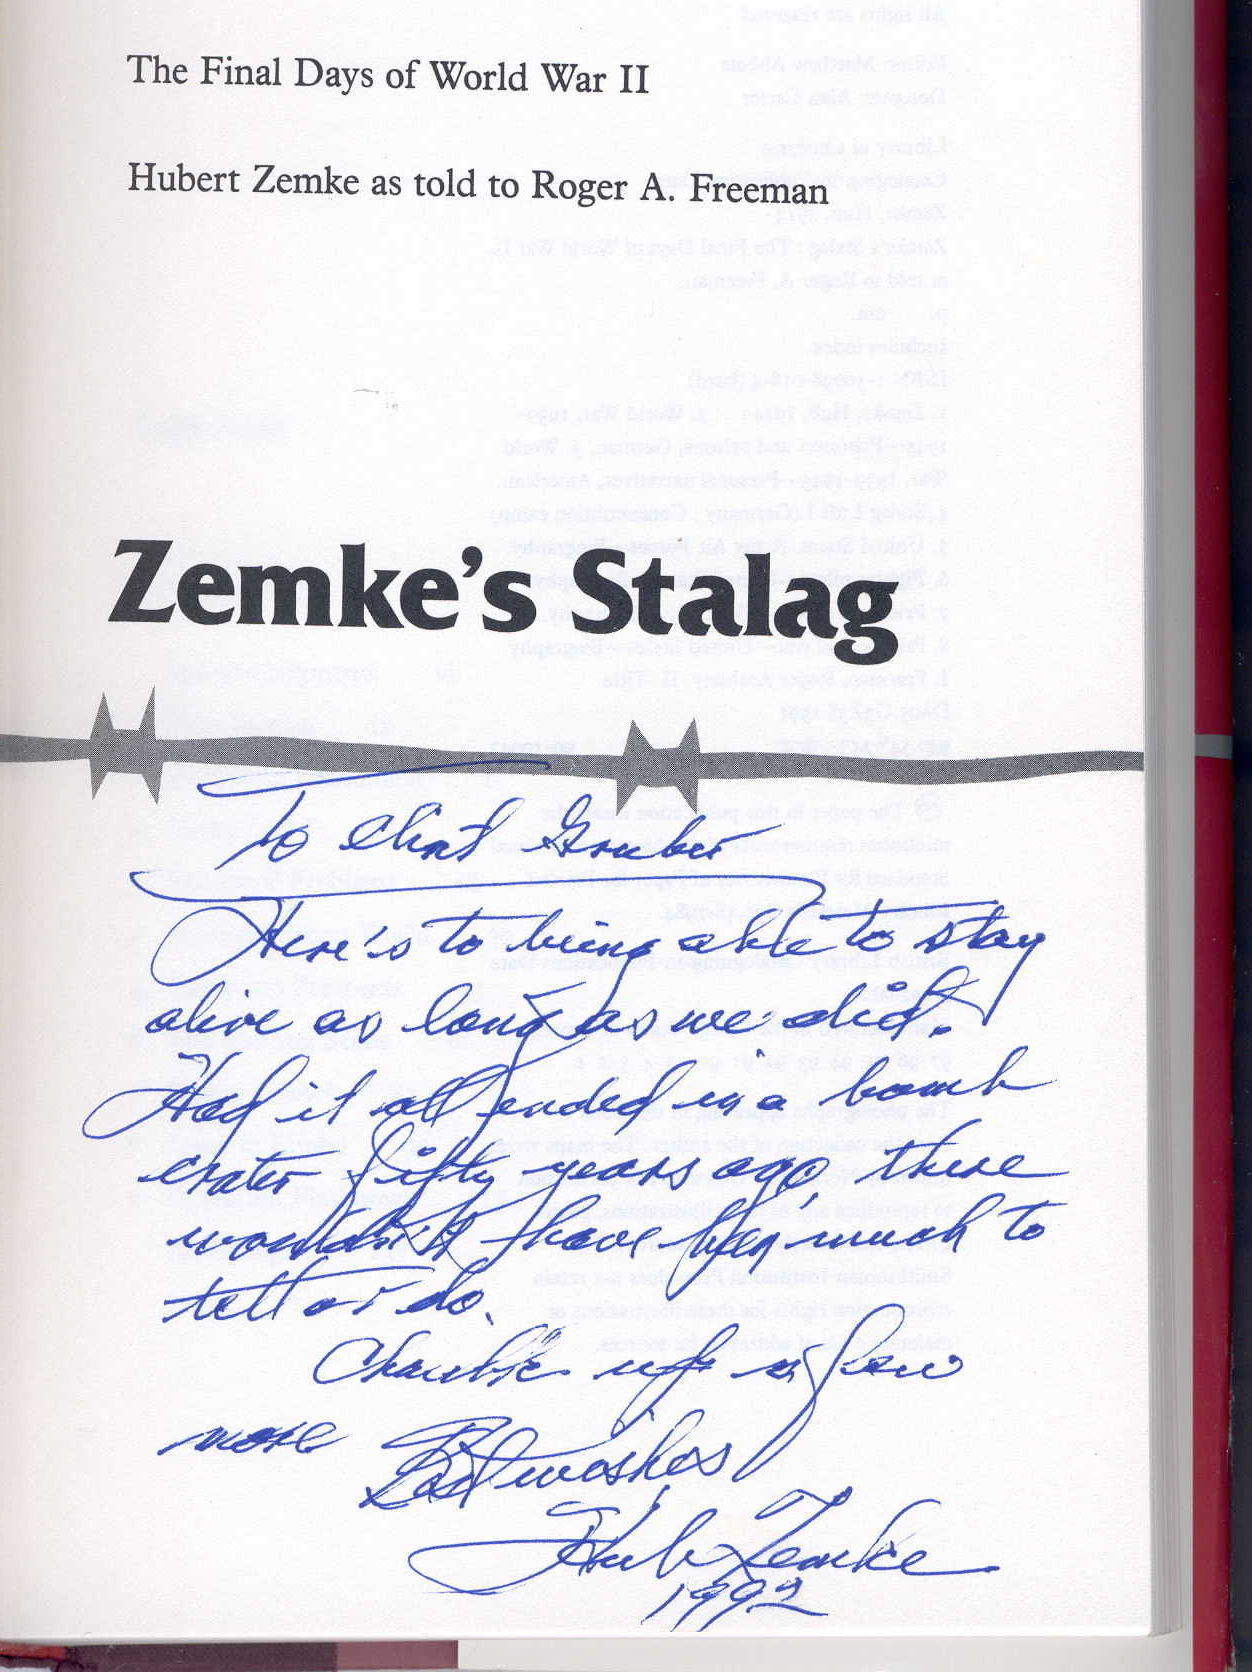 The Final Days of World War II
Hubert Zemke as told to Roger A. Freeman
Zemke's Stalag
To Chat Gruber
Here's to being able to stay
alive as long as we did.
Had it all ended in a bomb
crater fifty years ago, there
wouldn't have been much to
tell or do.
up a few
more Best wishes
Hub Zemke
1992